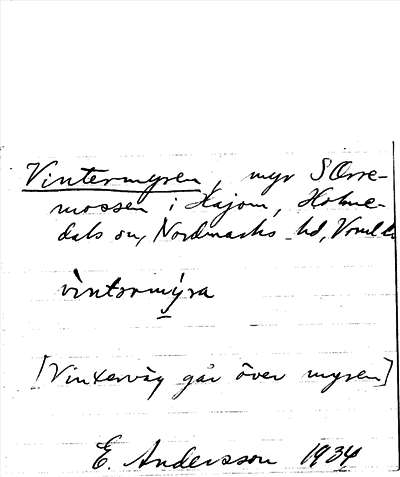 Vintermyren, myr S Orre-
mossen i Hajom, Holme-
dals sn, Nordmarks hd, Vrml.
vìntərmýra
[Vinterväg går över myren]
E. Andersson 1934